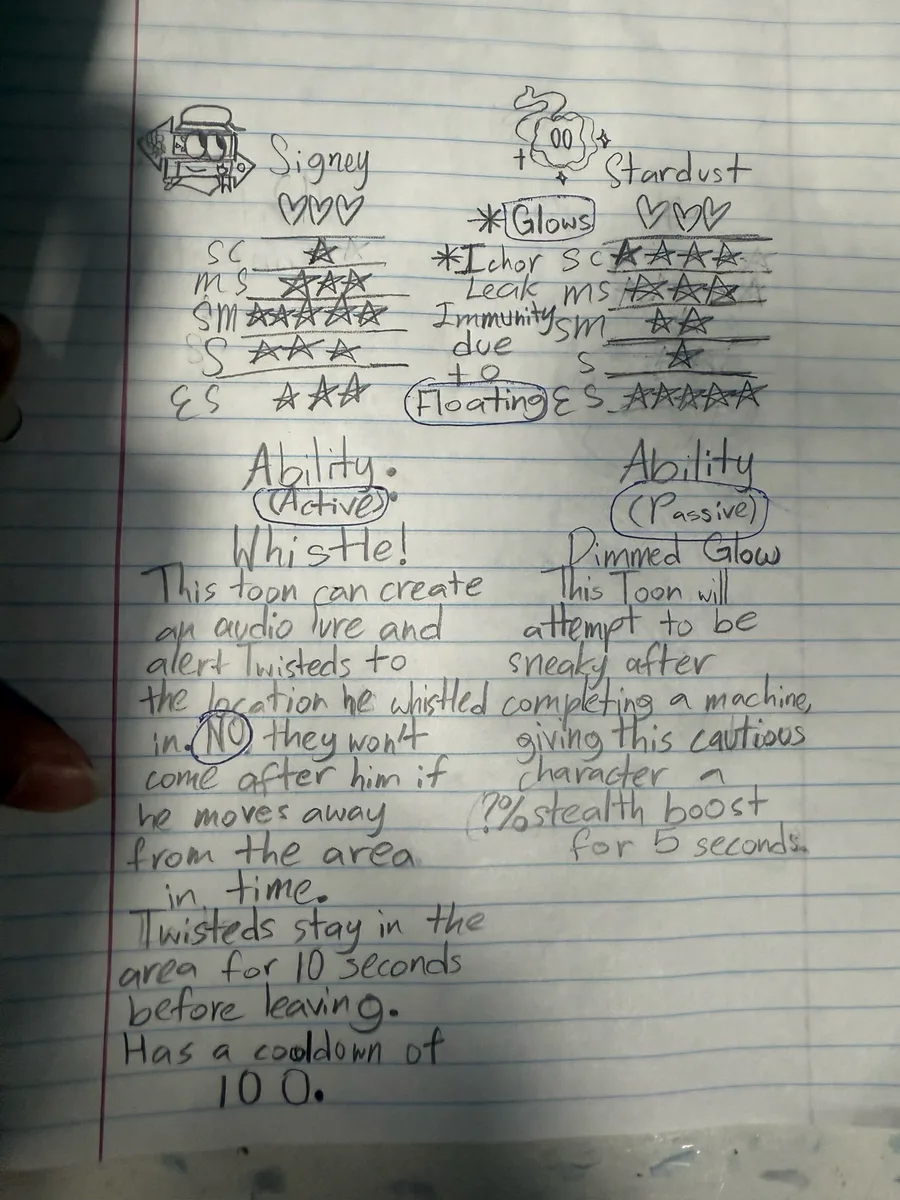 Signey
SC
MS
SM
S
ES
Ability.
(Active)
Whistle!
This toon can create
an audio lure and
alert Twisteds to
the location he whistled
in. NO they won't
come after him if
he moves away
from the area
in time.
Twisteds stay in the
area for 10 seconds
before leaving.
Has a cooldown of
100.
Stardust
*Glows
*Ichor
Leak
Immunity
due
to
Floating
SC
MS
SM
S
ES
Ability
(Passive)
Dimmed Glow
This Toon will
attempt to be
sneaky after
completing a machine,
giving this cautious
character a
(?% stealth boost
for 5 seconds.